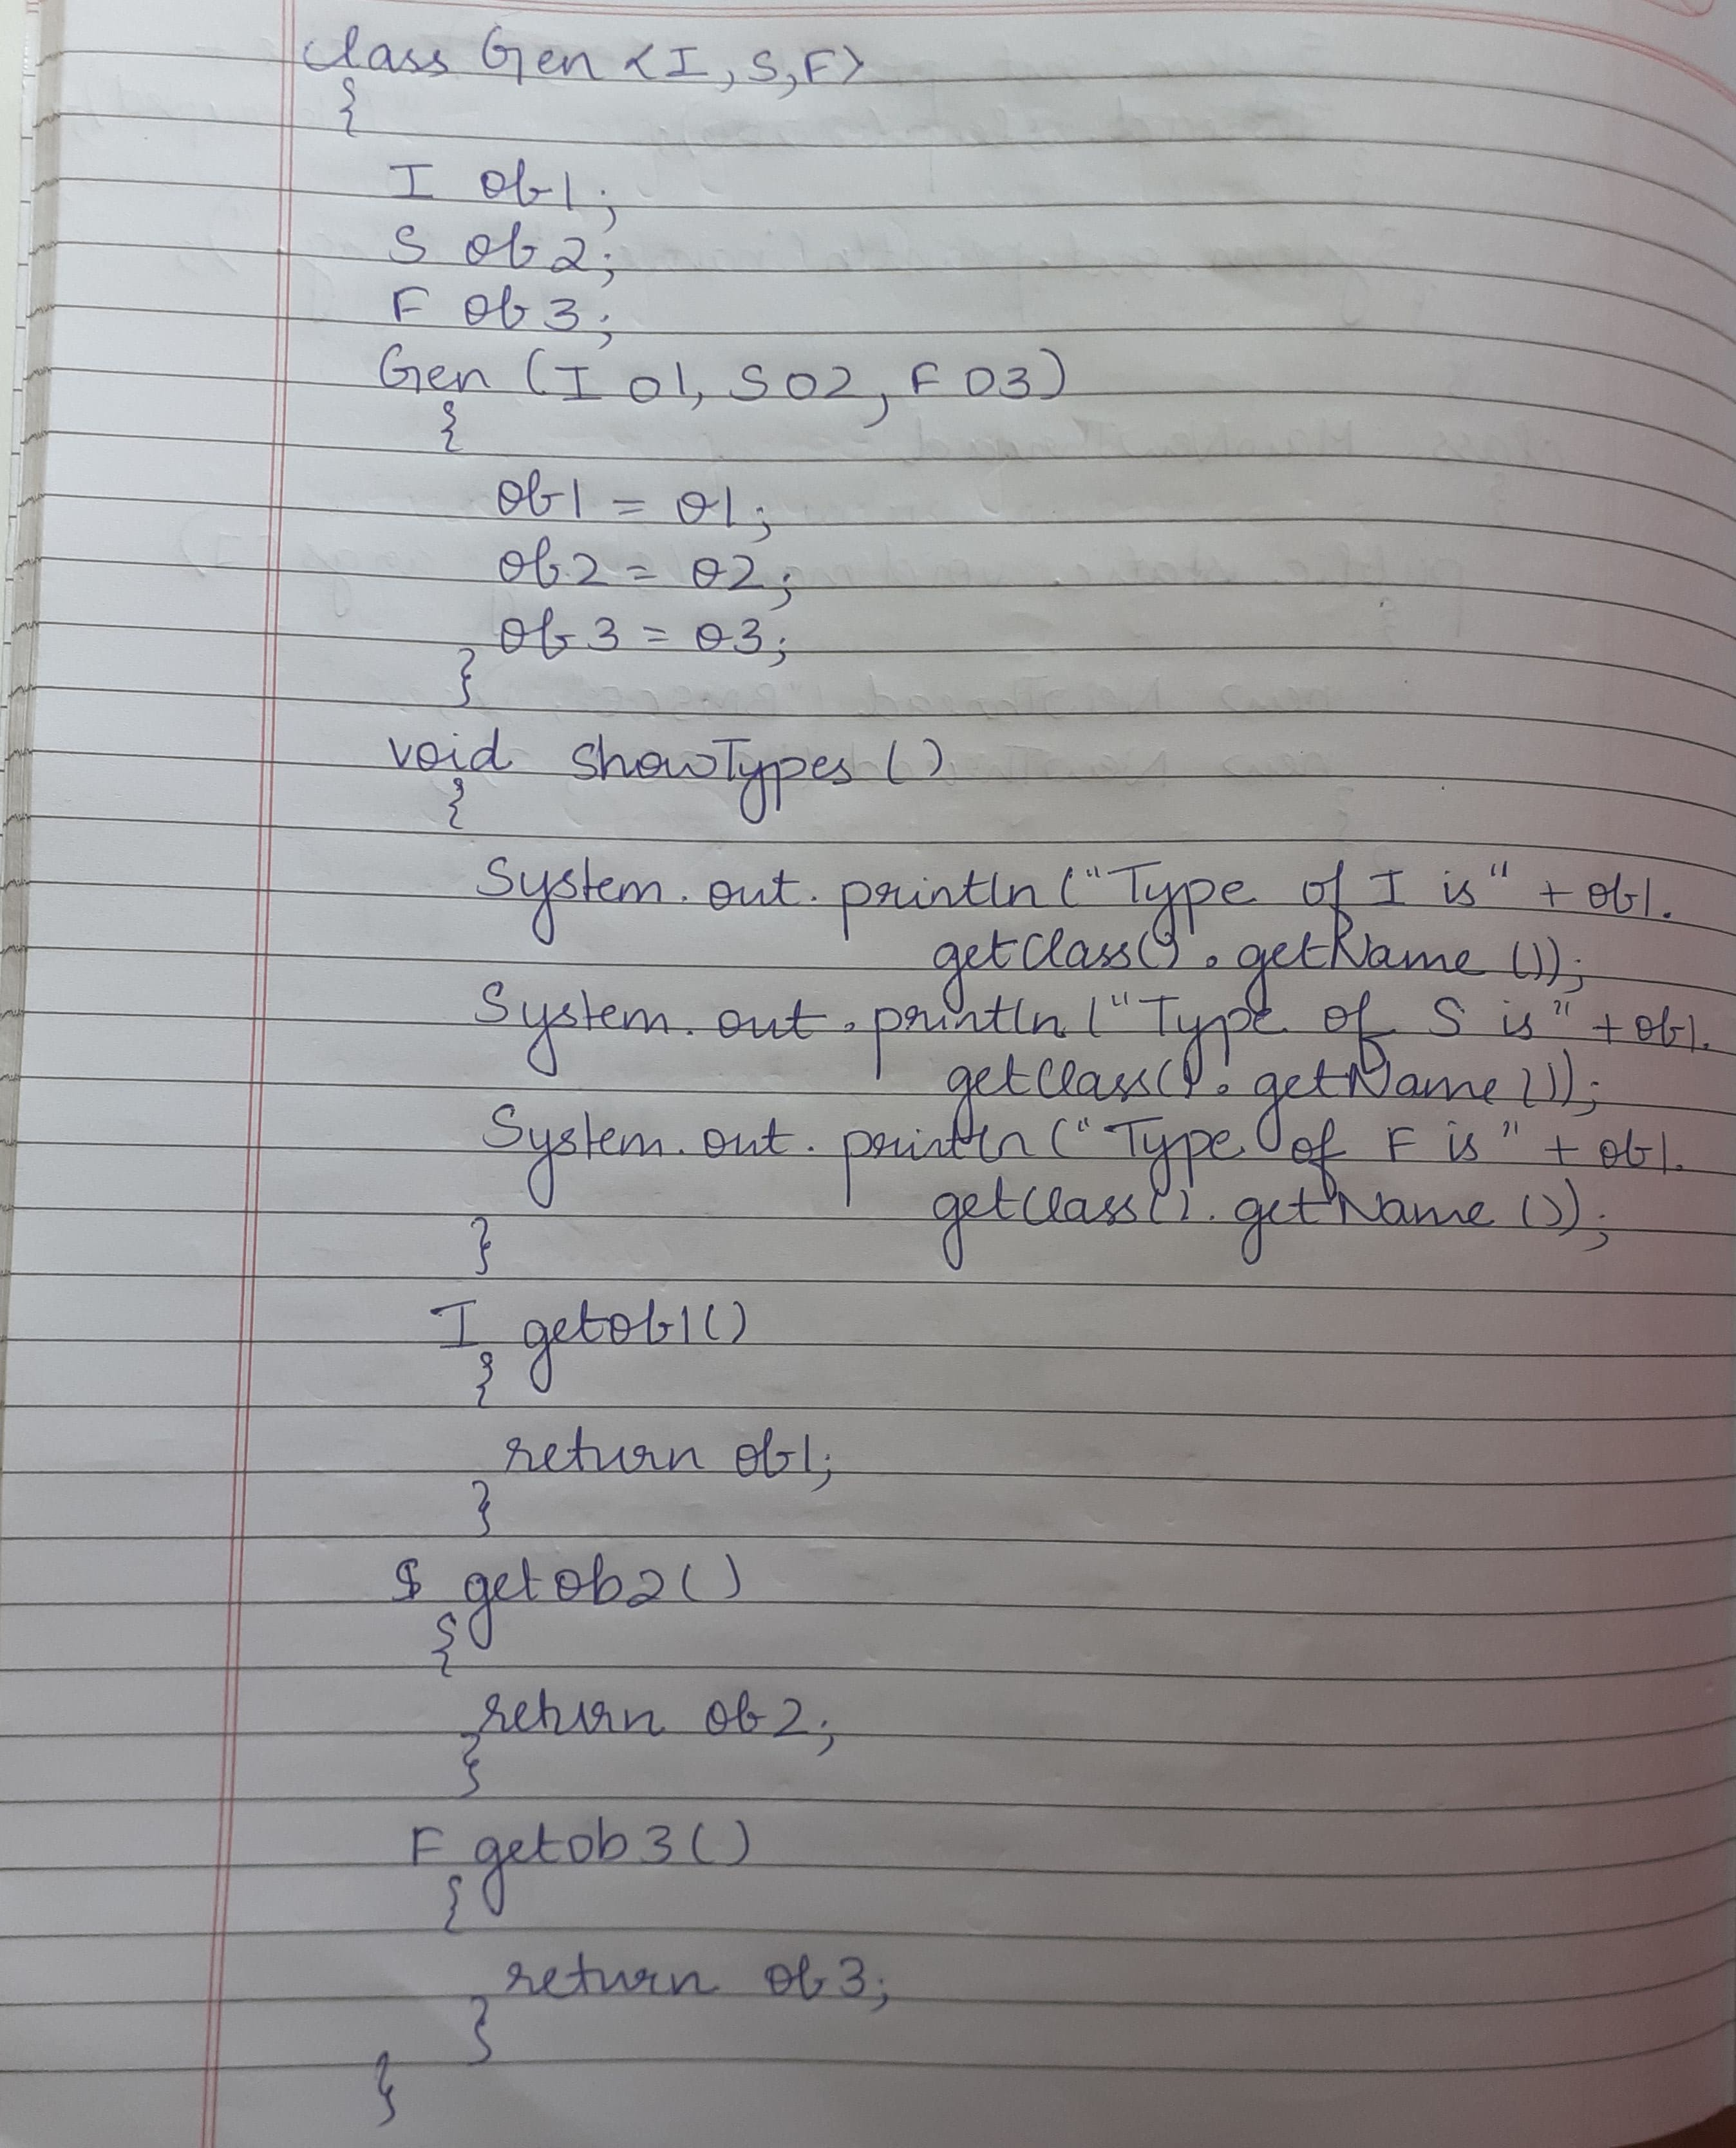 class Gen <I, S, F>
{
I ob1;
S ob2;
F ob3;
Gen (I o1, S o2, F o3)
{
ob1 = o1;
ob2 = o2;
ob3 = o3;
}
void showTypes ()
{
System.out.println ("Type of I is" + ob1.
getClass().getName ());
System.out.println ("Type of S is" + ob1.
getClass().getName ());
System.out.println ("Type of F is" + ob1.
getClass().getName ());
}
I getob1()
{
return ob1;
}
S getob2()
{
return ob2;
}
F getob3()
{
return ob3;
}
}